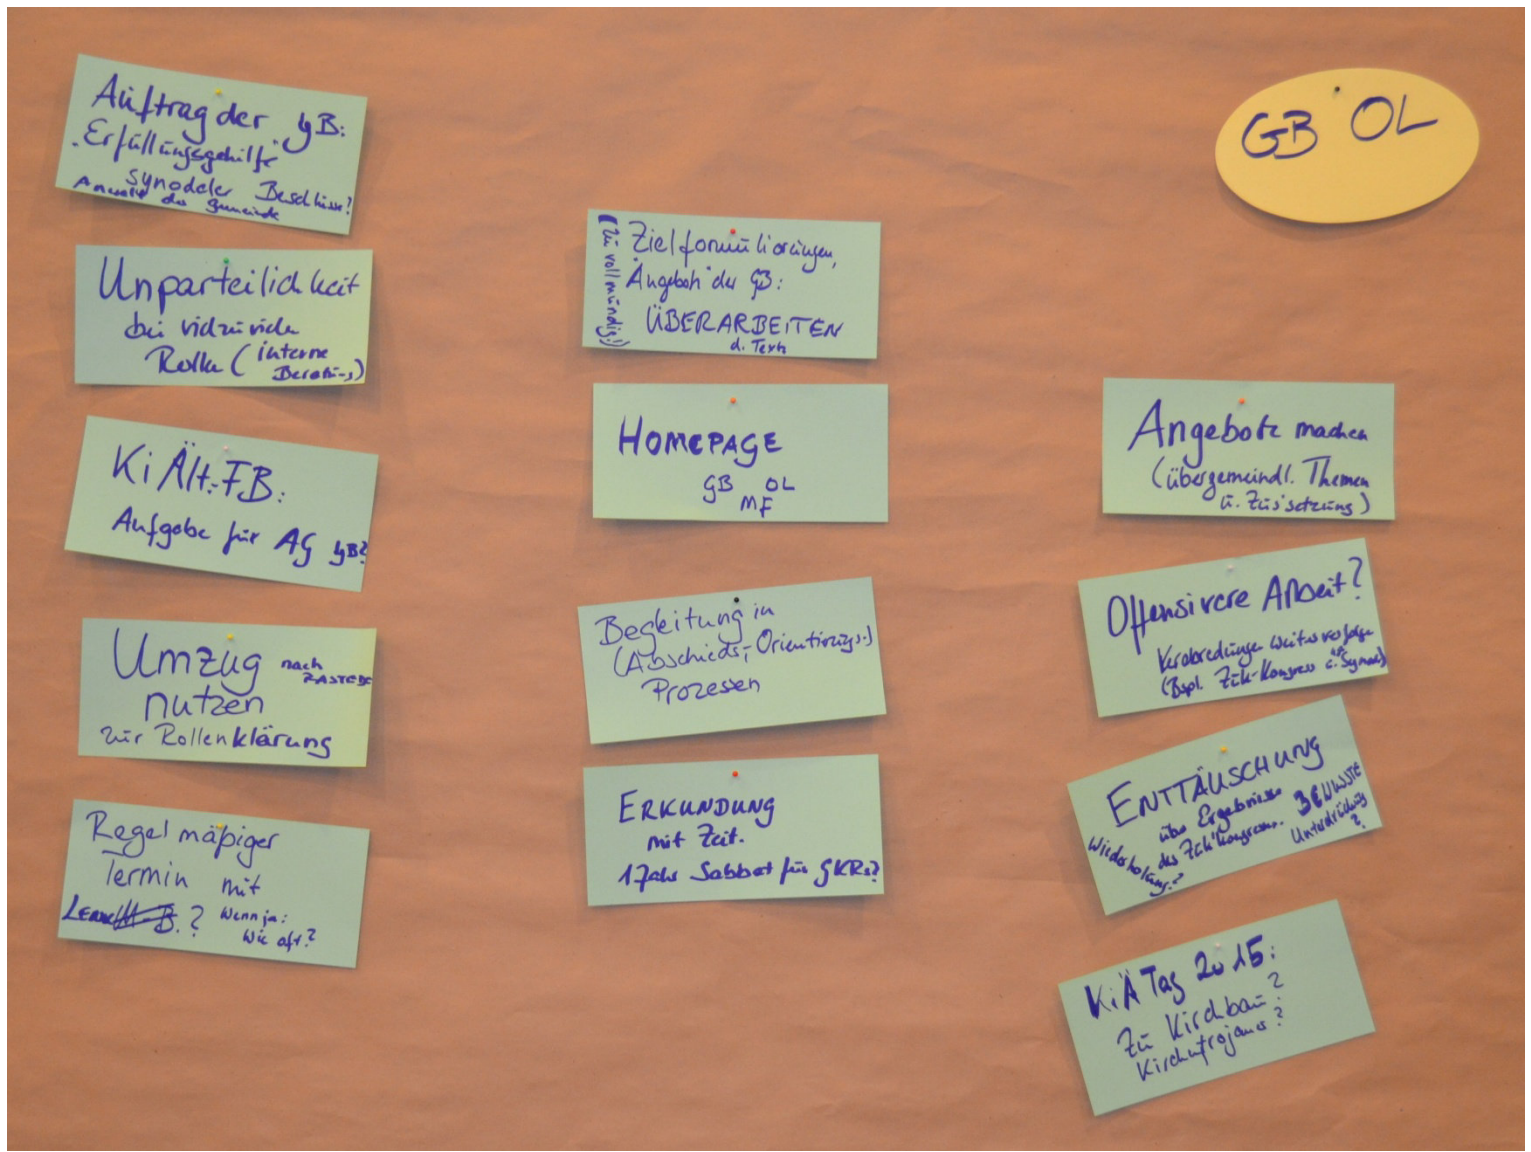 GB OL
Auftrag der GB:
"Erfüllungsgehilfe"
synodaler Beschlüsse?
Anwalt der Gemeinde
Unparteilichkeit
bei vielzuviele
Rolle (interne
Beratung)
Ki Ält.-FB:
Aufgabe für AG GB?
Umzug nach
RASTEDE
nutzen
zur Rollenklärung
Regelmäßiger
Termin mit
? Wenn ja:
Wie oft?
(zu vollmundig!)
Zielformulierungen,
"Angebote" der GB:
ÜBERARBEITEN
d. Texte
HOMEPAGE
GB OL
MF
Begleitung in
(Abschieds-, Orientierungs-)
Prozessen
ERKUNDUNG
mit Zeit.
1 Jahr Sabbat für GKRs?
Angebote machen
(übergemeindl. Themen
u. Zus'setzung)
Offensivere Arbeit?
Verabredungen weiterverfolgen
(Bspl. Zuk-Kongress u. Synode)
ENTTÄUSCHUNG
über Ergebnisse
des Zuk'kongresses.
Wiederholung?
BEWUSSTE
Unterdrückung
?
KiÄ Tag 2015:
Zu Kirchbau?
Kirchturojaner?